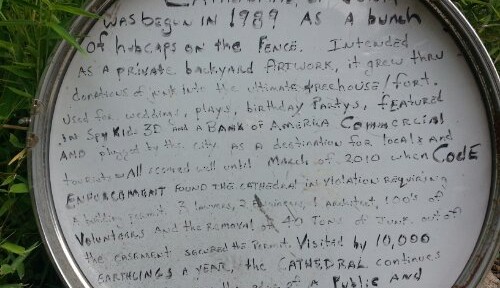 CATHEDRAL OF JUNK
WAS begun IN 1989 AS A bunch
of hubcaps on the Fence. Intended
AS A private backyard Artwork, it grew thru
donations of junk into the ultimate treehouse/fort.
Used for weddings, plays, birthday Partys, featured
in Spy Kids 3D and a BANK of AMERICA Commercial
AND plugged by the city as a destination for locals and
tourists All seemed well until March of 2010 when CODE
ENFORCEMENT FOUND THE CATHEDRAL in violation requiring
A building permit. 3 lawyers, 2 engineers, 1 architect, 100's of
Volunteers and the Removal of 40 Tons of Junk out of
the easement secured the Permit. Visited by 10,000
EARTHLINGS A YEAR, the CATHEDRAL continues
of a Public AND